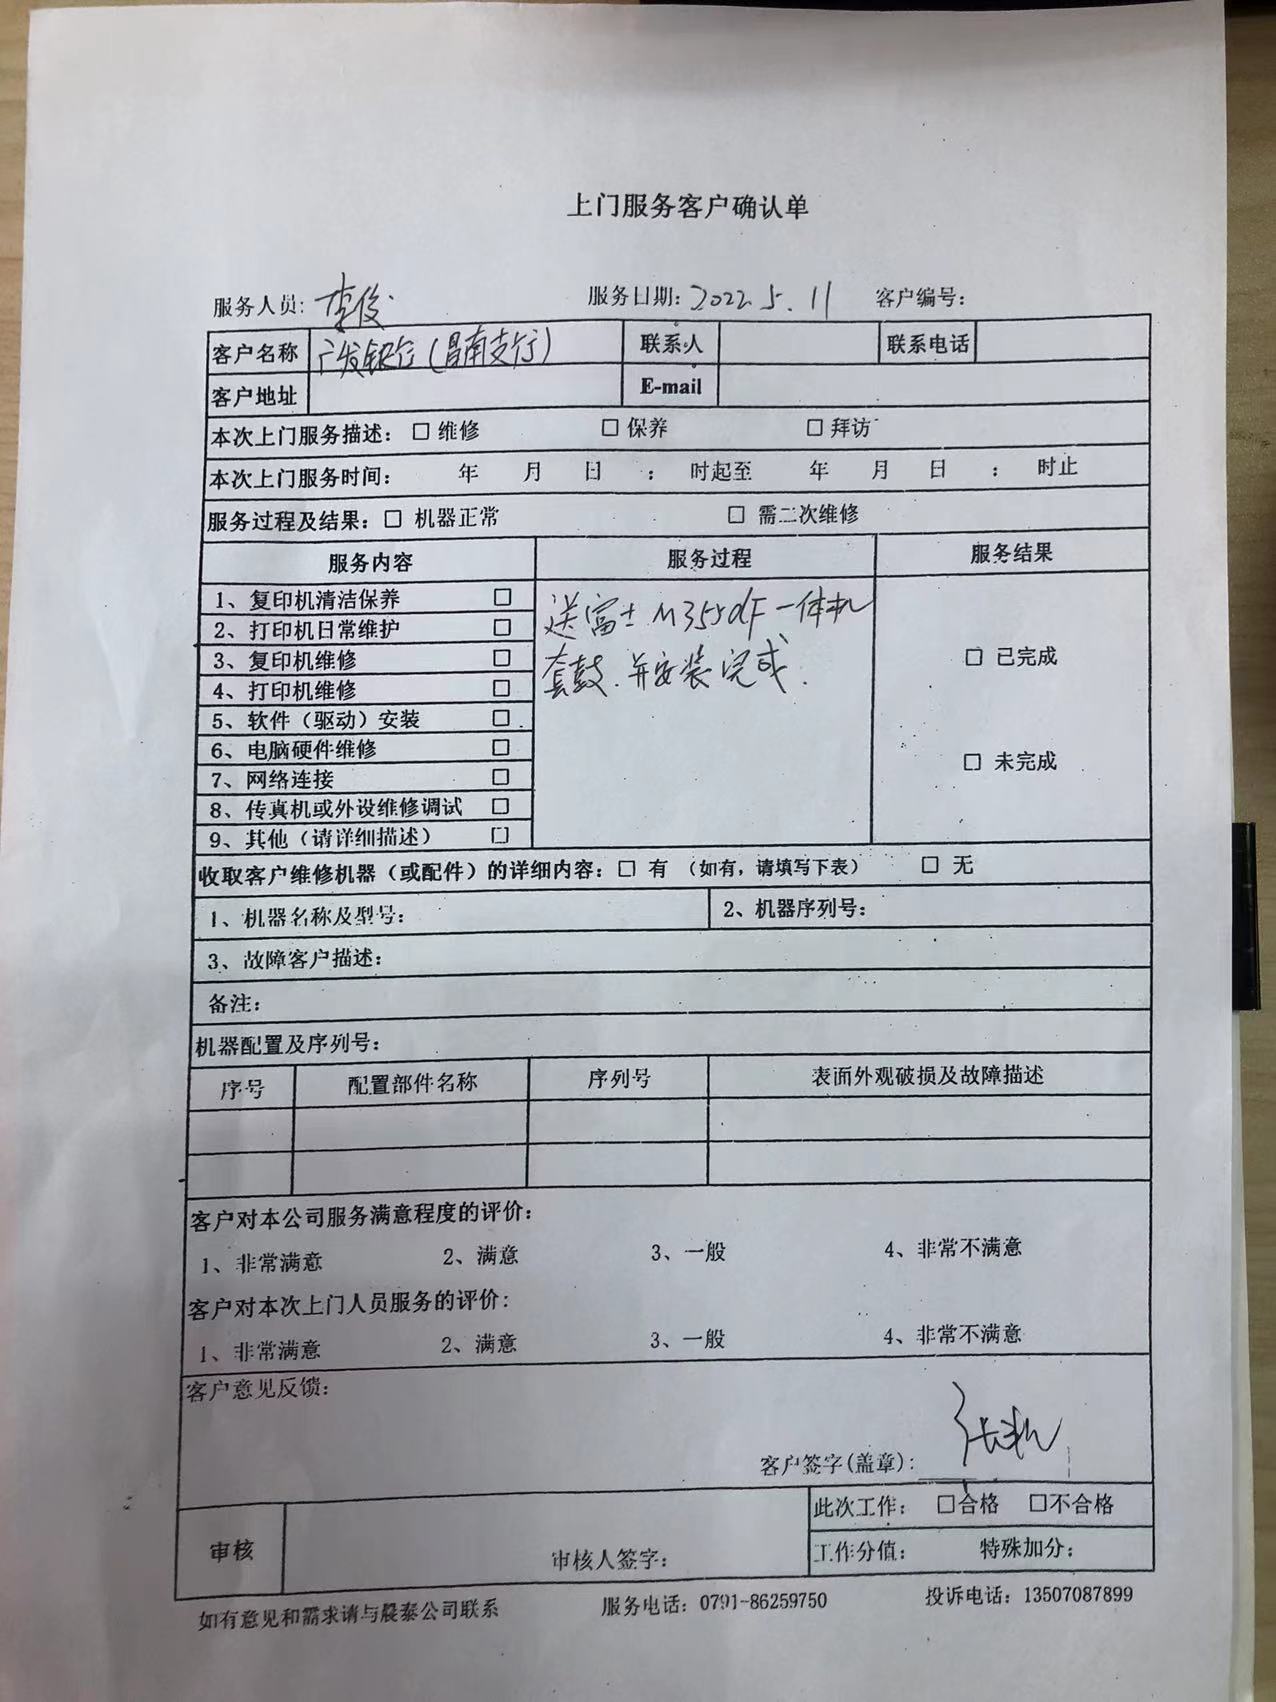 上门服务客户确认单
服务人员: 李俊 服务日期: 2022.5.11 客户编号:
客户名称 广发银行(昌南支行) 联系人 联系电话
客户地址 E-mail
本次上门服务描述: □ 维修 □ 保养 □ 拜访
本次上门服务时间: 年 月 日 : 时起至 年 月 日 : 时止
服务过程及结果: □ 机器正常 □ 需二次维修
服务内容 服务过程 服务结果
1、复印机清洁保养 □
2、打印机日常维护 □
3、复印机维修 □
4、打印机维修 □
5、软件（驱动）安装 □
6、电脑硬件维修 □
7、网络连接 □
8、传真机或外设维修调试 □
9、其他（请详细描述） □
送富士M355df一体机
套鼓.并安装完成.
□ 已完成
□ 未完成
收取客户维修机器（或配件）的详细内容: □ 有 （如有，请填写下表） □ 无
1、机器名称及型号: 2、机器序列号:
3、故障客户描述:
备注:
机器配置及序列号:
序号 配置部件名称 序列号 表面外观破损及故障描述
客户对本公司服务满意程度的评价:
1、非常满意 2、满意 3、一般 4、非常不满意
客户对本次上门人员服务的评价:
1、非常满意 2、满意 3、一般 4、非常不满意
客户意见反馈:
客户签字(盖章):
审核 审核人签字: 此次工作: □合格 □不合格
工作分值: 特殊加分:
如有意见和需求请与晨泰公司联系 服务电话: 0791-86259750 投诉电话: 13507087899